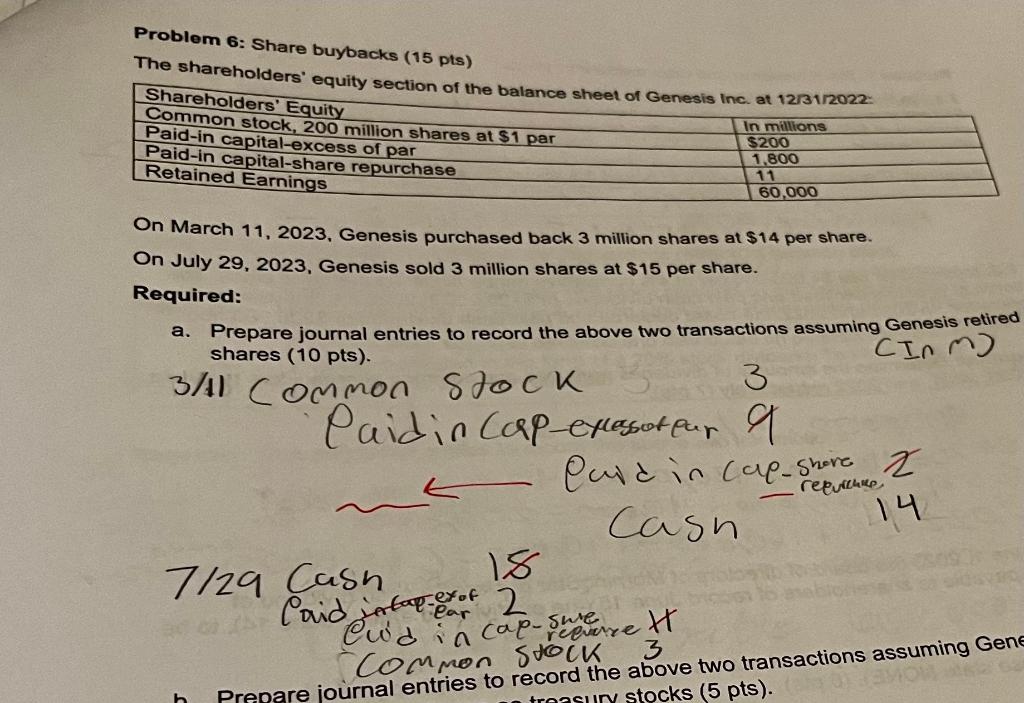 Problem 6: Share buybacks (15 pts)
The shareholders' equity section of the balance sheet of Genesis Inc. at 12/31/2022:
Shareholders' Equity In millions
Common stock, 200 million shares at $1 par $200
Paid-in capital-excess of par 1,800
Paid-in capital-share repurchase 11
Retained Earnings 60,000
On March 11, 2023, Genesis purchased back 3 million shares at $14 per share.
On July 29, 2023, Genesis sold 3 million shares at $15 per share.
Required:
a. Prepare journal entries to record the above two transactions assuming Genesis retired
shares (10 pts).
(In m)
3/11 Common Stock 3
Paid in Cap-excess of par 9
Paid in cap-share 2
repurchase
Cash 14
7/29 Cash
Paid in cap-ex of 2
par
Paid in cap-
Common Stock 3
b. Prepare journal entries to record the above two transactions assuming Gene
treasury stocks (5 pts).